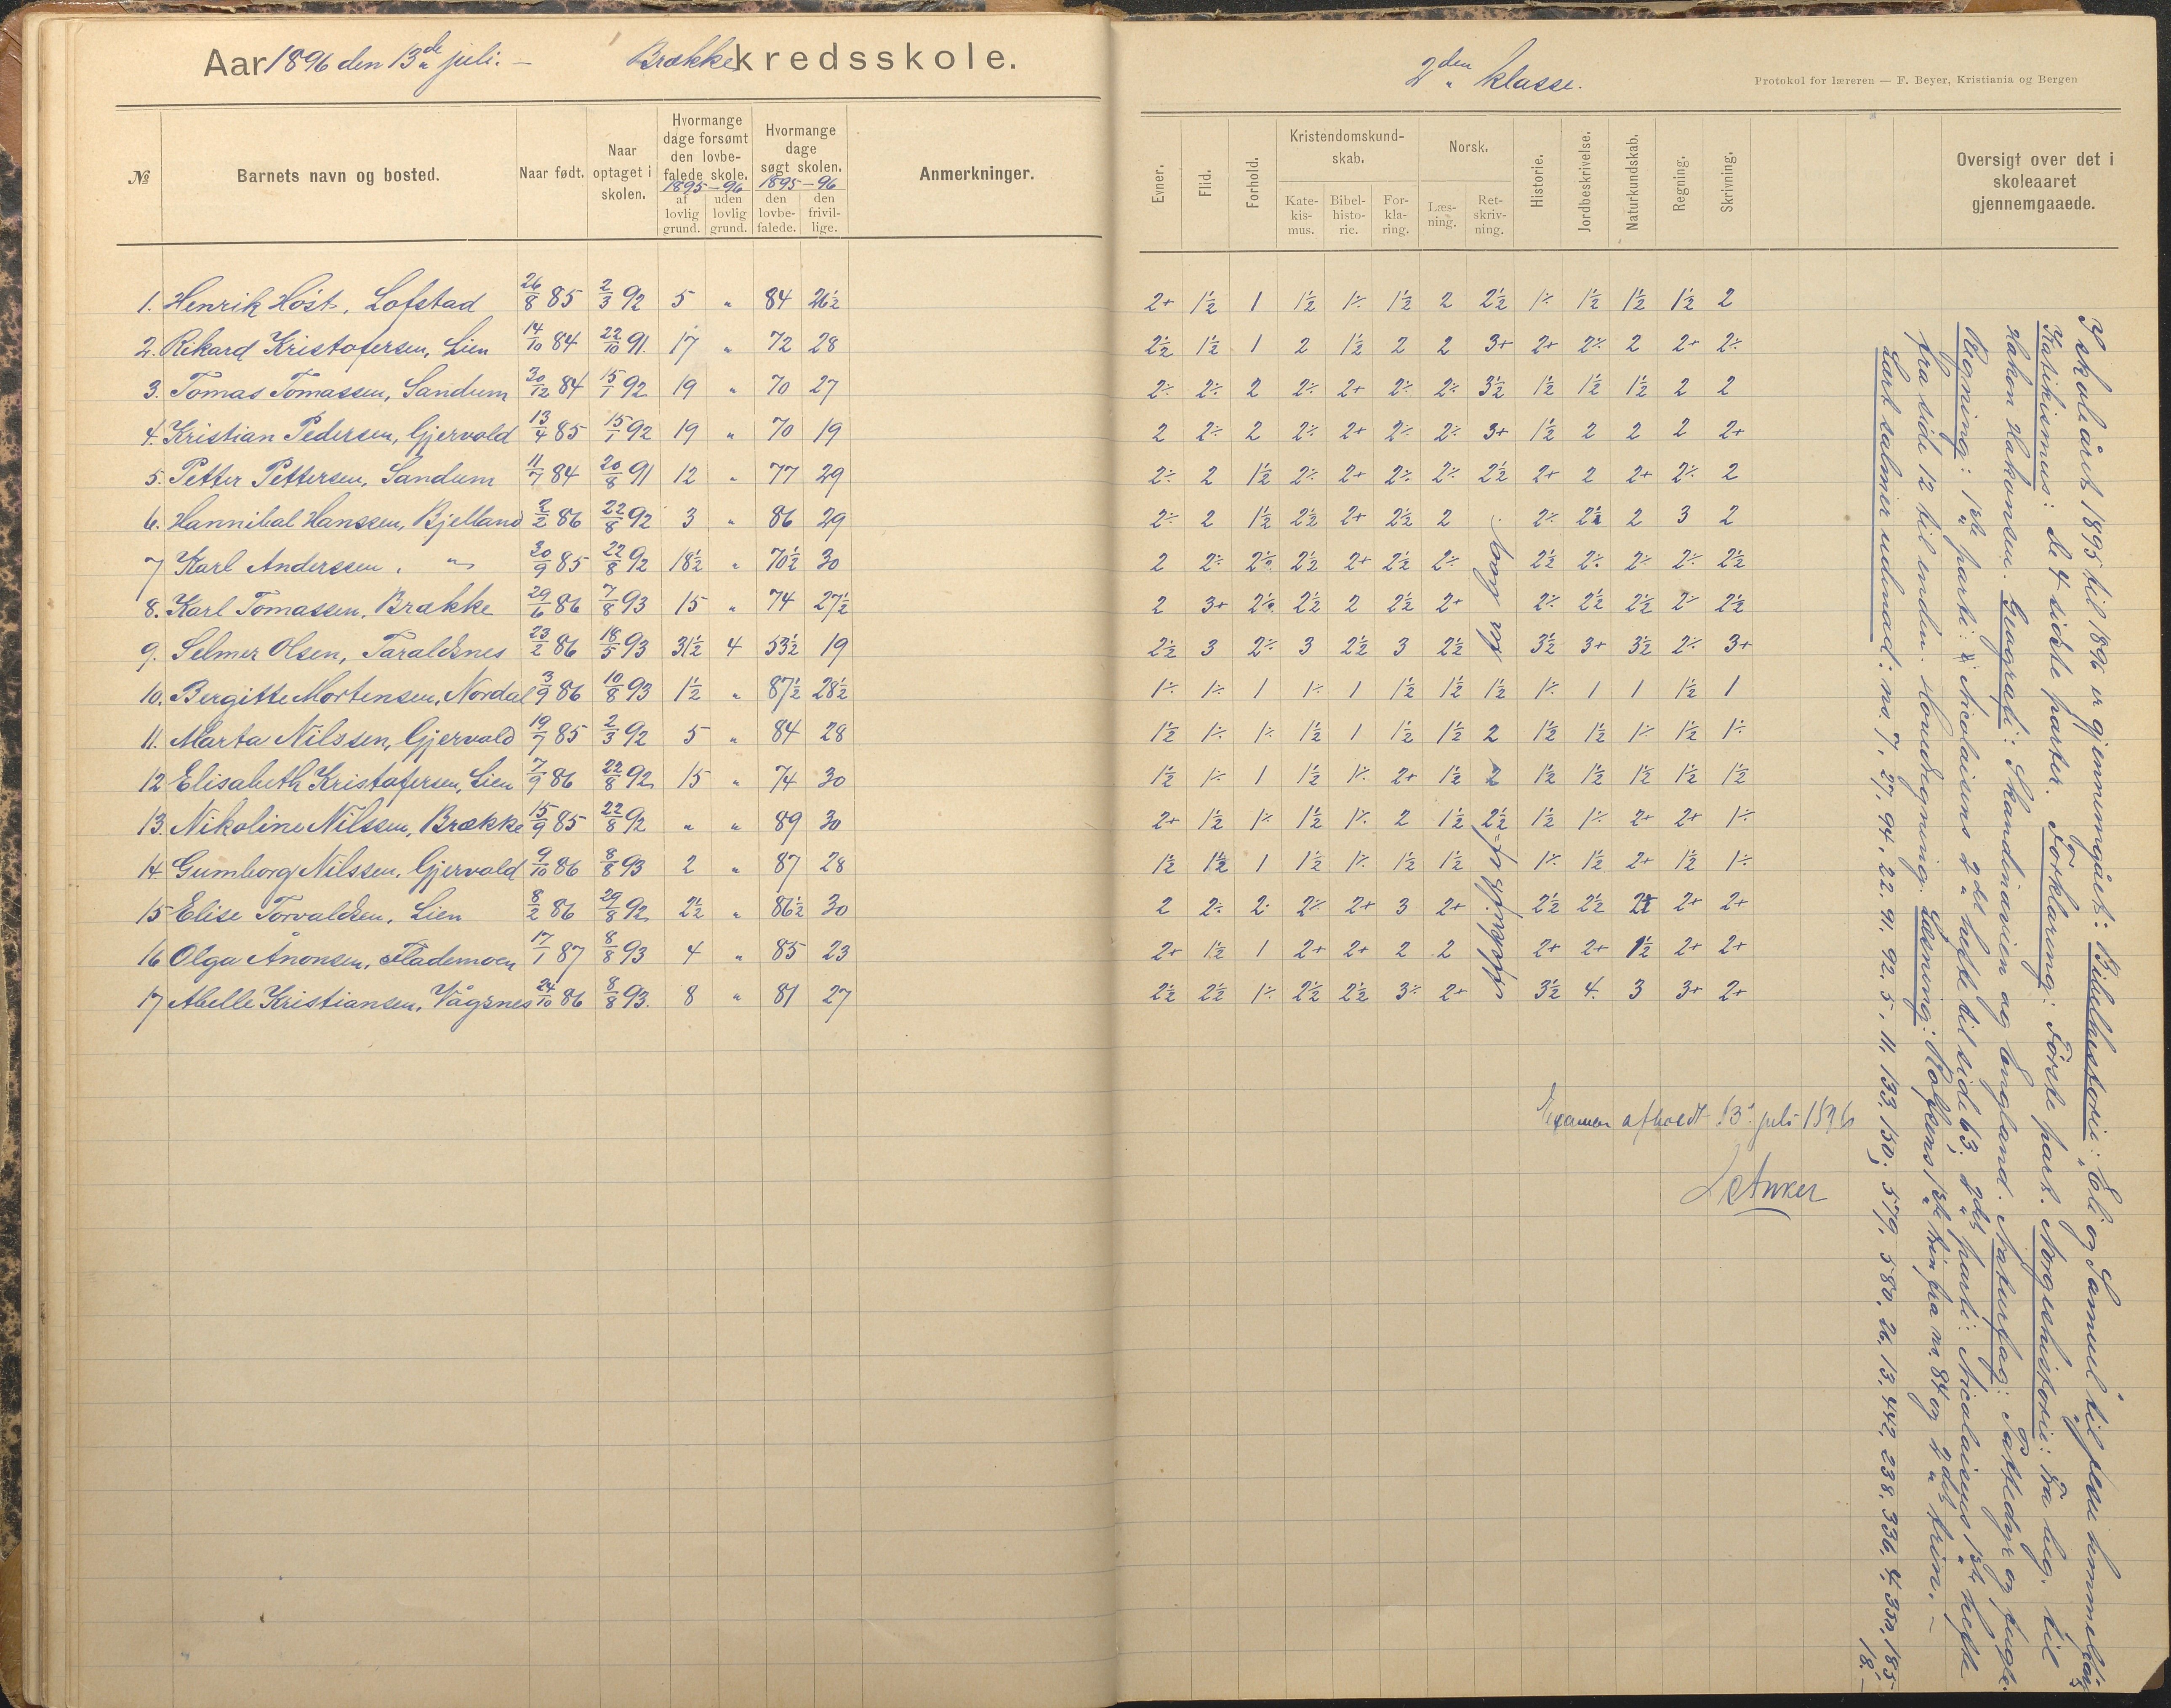 Aar 1896 den 13de juli. — Brække kredsskole.
2den klasse.
Protokol for læreren — F. Beyer, Kristiania og Bergen
№ Barnets navn og bosted. Naar født. Naar optaget i skolen. Hvormange dage forsømt den lovbefalede skole. 1895–96 af lovlig grund. uden lovlig grund. Hvormange dage søgt skolen. 1895–96 den lovbefalede. den frivillige. Anmerkninger.
Evner. Flid. Forhold. Kristendomskundskab. Katekismus. Bibelhistorie. Forklaring. Norsk. Læsning. Retskrivning. Historie. Jordbeskrivelse. Naturkundskab. Regning. Skrivning. Oversigt over det i skoleaaret gjennemgaaede.
1. Henrik Höst, Lofstad 26/8 85 2/3 92 5 " 84 26½ 2+ 1½ 1 1½ 1÷ 1½ 2 2½ 1÷ 1½ 1½ 1½ 2
2. Rikard Kristofersen, Lien 14/10 84 22/10 91. 17 " 72 28 2½ 1½ 1 2 1½ 2 2 3+ 2+ 2÷ 2 2+ 2÷
3. Tomas Tomassen, Sandum 30/12 84 15/1 92 19 " 70 27 2÷ 2÷ 2 2÷ 2+ 2÷ 2÷ 3½ 1½ 1½ 1½ 2 2
4. Kristian Pedersen, Gjervold 13/4 85 15/1 92 19 " 70 19 2 2÷ 2 2÷ 2+ 2÷ 2÷ 3+ 1½ 2 2 2 2+
5. Petter Pettersen, Sandum 11/7 84 20/8 91 12 " 77 29 2÷ 2 1½ 2÷ 2+ 2÷ 2÷ 2½ 2+ 2 2+ 2÷ 2
6. Hannibal Hanssen, Bjelland 2/2 86 22/8 92 3 " 86 29 2÷ 2 1½ 2½ 2+ 2½ 2 2÷ 2½ 2 3 2
7 Karl Anderssen, " 30/9 85 22/8 92 18½ " 70½ 30 2 2÷ 2½ 2½ 2+ 2½ 2÷ 2½ 2÷ 2÷ 2÷ 2½
8. Karl Tomassen, Brække 29/6 86 7/8 93 15 " 74 27½ 2 3+ 2÷ 2½ 2 2½ 2+ 2÷ 2½ 2½ 2÷ 2½
9. Selmer Olsen, Taraldsnes 23/2 86 18/5 93 31½ 4 53½ 19 2½ 3 2÷ 3 2½ 3 2½ 3½ 3+ 3½ 2÷ 3+
10. Bergitte Mortensen, Nordal 3/9 86 10/8 93 1½ " 87½ 28½ 1÷ 1÷ 1 1÷ 1 1½ 1½ 1½ 1÷ 1 1 1½ 1
11. Marta Nilssen, Gjervold 19/7 85 2/3 92 5 " 84 28 1½ 1÷ 1÷ 1½ 1 1½ 1½ 2 1½ 1½ 1÷ 1½ 1÷
12 Elisabeth Kristofersen, Lien 7/9 86 22/8 92 15 " 74 30 1½ 1÷ 1 1½ 1÷ 2+ 1½ 2 1½ 1½ 1½ 1½ 1½
13. Nikoline Nilssen, Brække 15/9 85 22/8 92 " " 89 30 2+ 1½ 1÷ 1½ 1÷ 2 1½ 2½ 1½ 1÷ 2+ 2+ 1÷
14 Gumborg Nilssen, Gjervold 9/10 86 8/8 93 2 " 87 28 1½ 1½ 1 1½ 1÷ 1½ 1½ 1÷ 1½ 2+ 1½ 1÷
15 Elise Torvaldsen, Lien 8/2 86 29/8 92 2½ " 86½ 30 2 2÷ 2÷ 2÷ 2+ 3 2+ 2½ 2½ 2½ 2+ 2+
16 Olga Ånonsen, Flademoen 17/1 87 8/8 93 4 " 85 23 2+ 1½ 1 2+ 2+ 2 2 2+ 2+ 1½ 2+ 2+
17 Abelle Kristiansen, Vågsnes 24/10 86 8/8 93. 8 " 81 27 2½ 2½ 1÷ 2½ 2½ 3÷ 2+ 3½ 4. 3 3+ 2+
Examen afholdt 13de juli 1896
Anker
I skoleåret 1895 til 1896 er gjennemgået: Bibelhistorie: "Eli og Samuel" til "Jesu himmelfart"
Katekismus: De 4 sidste parter. Forklaring: Förste part. Norgeshistorie: Fra beg. til
Hakon Hakonsen. Geografi: Skandinavien og England. Naturfag: Pattedyr og fugle.
Regning: 1ste parti: Nicolaisens 2det hefte til side 63; 2det parti: Nicolaisens 1ste hefte
fra side 12 til enden. Hovedregning. Læsning: Rolfsens 1ste trin fra nr. 84 og 2det trin. —
Lært salmer udenad: no. 7, 27, 94, 22, 91, 92, 5, 11, 133, 150, 579, 580, 26, 13, 442, 238, 336, 4, 350, 185
18. —